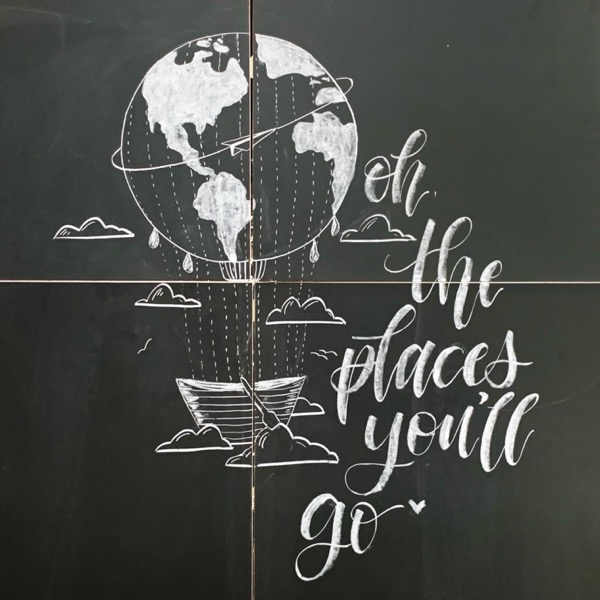 oh,
the
places
you'll
go